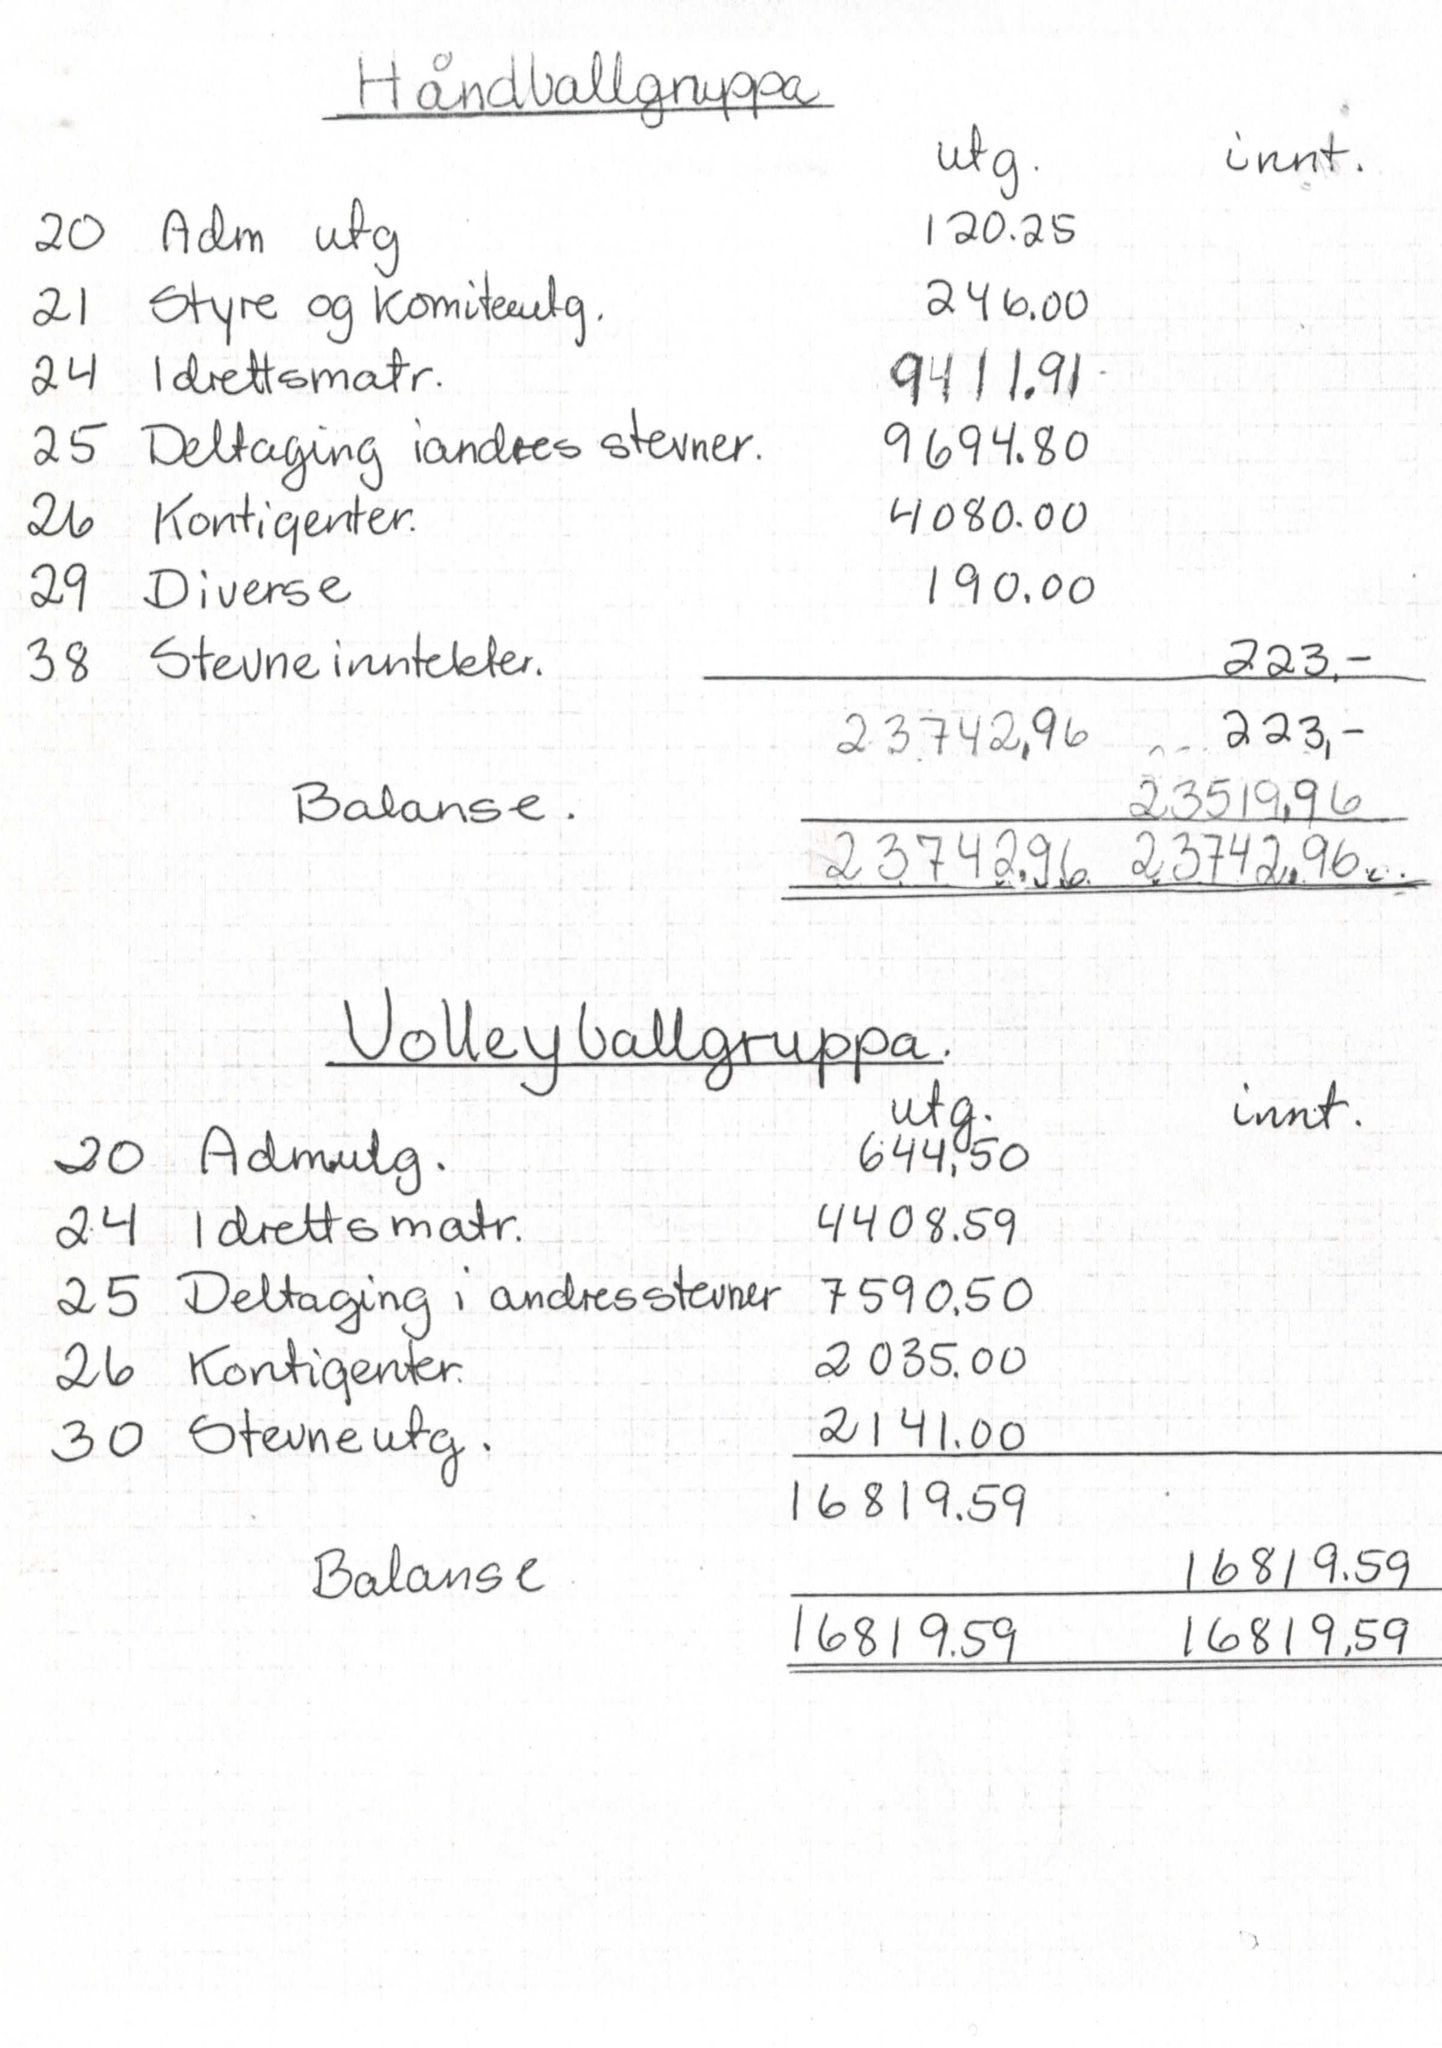 Håndballgruppa
utg. innt.
20 Adm utg 120.25
21 Styre og Komiteeutg. 246.00
24 Idrettsmatr. 9411.91
25 Deltaging i andres stevner. 9694.80
26 Kontigenter. 4080.00
29 Diverse 190.00
38 Stevneinntekter. 223,-
23742,96 223,-
Balanse. 23519,96
23742.96 23742,96
Volleyballgruppa.
utg. innt.
20 Adm.utg. 644,50
24 Idrettsmatr. 4408.59
25 Deltaging i andres stevner 7590,50
26 Kontigenter. 2035.00
30 Stevneutg. 2141.00
16819.59
Balanse 16819.59
16819.59 16819,59